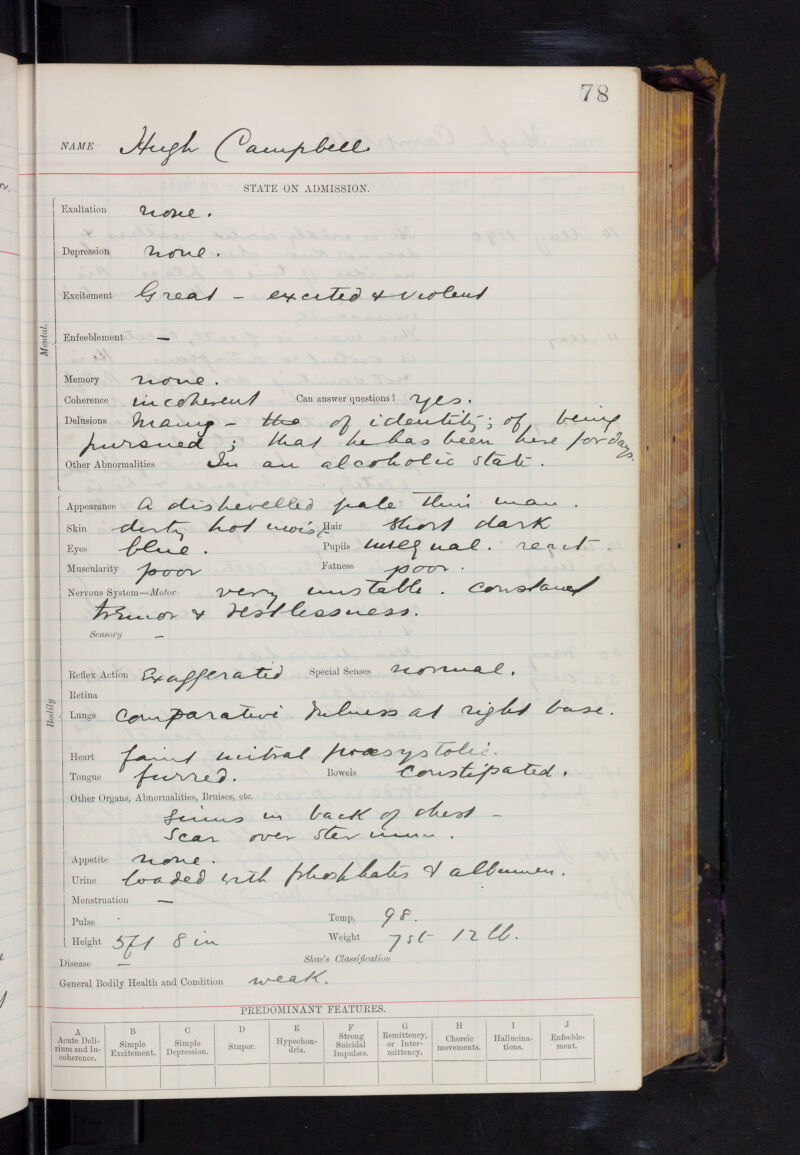 78
NAME Hugh Campbell
STATE ON ADMISSION.
Mental.
Exaltation none.
Depression none.
Excitement Great - excited & violent
Enfeeblement —
Memory none.
Coherence incoherent Can answer questions? yes.
Delusions Many - the of identity; of being
pursued; that he has been here for days.
Other Abnormalities In an alcoholic state.
Bodily
Appearance A dishevelled pale thin man.
Skin dirty hot moist Hair short dark
Eyes blue. Pupils unequal. react.
Muscularity poor Fatness poor.
Nervous System—Motor very unstable. constant
tremor & restlessness.
Sensory —
Reflex Action Exaggerated Special Senses normal.
Retina
Lungs Comparative dulness at right base.
Heart faint mitral præsystolic.
Tongue furred. Bowels Constipated.
Other Organs, Abnormalities, Bruises, etc.
Sinus in back of chest -
Scar over sternum.
Appetite none.
Urine loaded with phosphates & albumen.
Menstruation —
Pulse Temp. 98.
Height 5ft 8 in Weight 7st 12 lb.
Disease — Skae's Classification
General Bodily Health and Condition weak.
PREDOMINANT FEATURES.
A B C D E F G H I J
Acute Deli- Simple Simple Stupor. Hypochon- Strong Remittency, Choreic Hallucina- Enfeeble-
rium and In- Excitement. Depression. dria. Suicidal or Inter- movements. tions. ment.
coherence. Impulses. mittency.